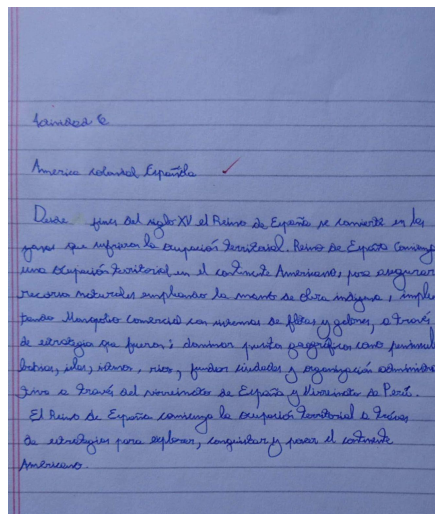 America colonial Española
Desde fines del siglo XV el Reino de España se convierte en las
que la ocupación territorial. Reino de España Comienza
una ocupación territorial en el continente Americano, para asegurar
recursos naturales empleando la mano de obra indígena, imple
tando Monopolio comercial con sistemas de flotas y galeones, a través
de estrategia que fueron: dominar puntos geográficos como penínsulas
islas, istmos, rios, fundar ciudades y organización administra
tiva a través del virreinato de España y Virreinato de Perú.
El Reino de España comienza la ocupación territorial a través
de estrategias para explorar, conquistar y poseer el continente
Americano.